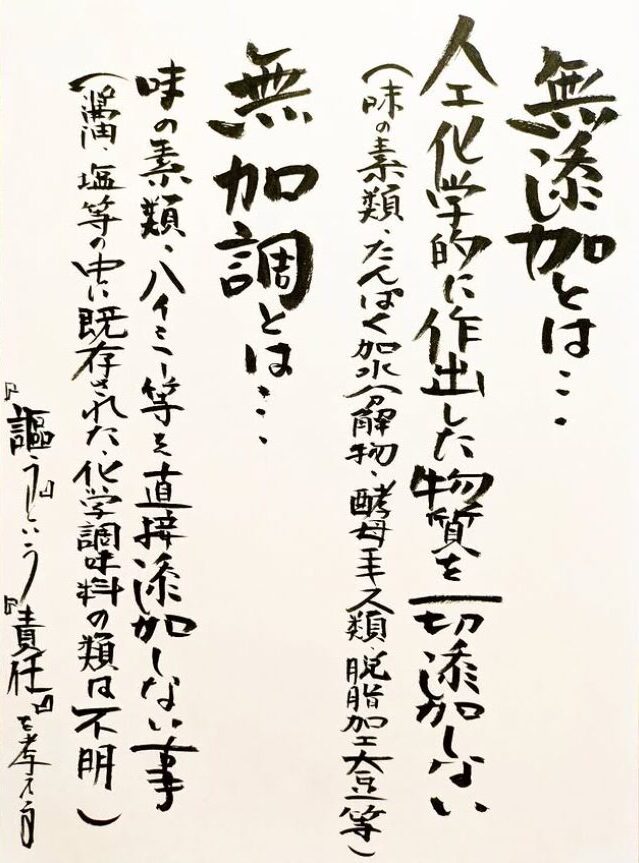 無添加とは…
人工化学的に作出した物質を一切添加しない
(味の素類、たんぱく加水分解物、酵母エキス類、脱脂加工大豆等)
無加調とは…
味の素類、ハイミー等を直接添加しない事
(醤油、塩等の中に既存された、化学調味料の類は不明)
『謳う』という『責任』を考える